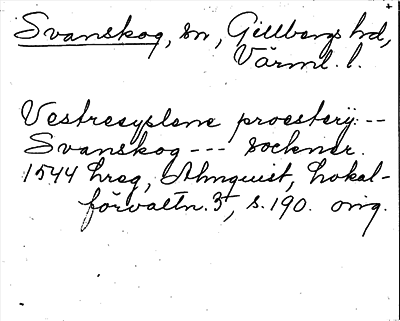 Svanskog, sn, Gillbergs hd,
Värml. l.
Vestresyslene proesterij: --
Svanskog --- sockner.
1544 hreg, Almquist, Lokal-
förvaltn. 3, s. 190. orig.